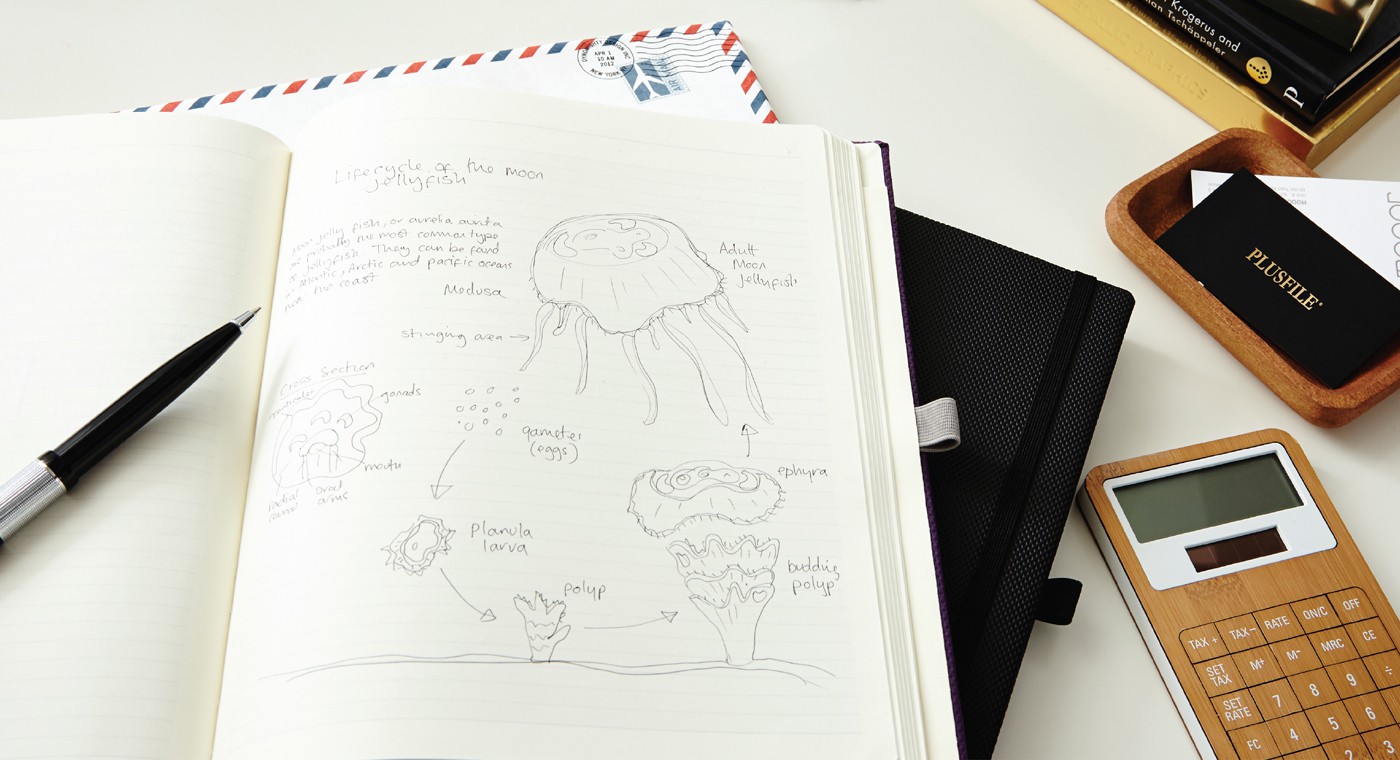 Lifecycle of the moon
jellyfish
Moon jelly fish, or aurelia aurita
are probably the most common type
of jellyfish. They can be found
in Atlantic, Arctic and pacific oceans
near the coast
Medusa
stinging area
Adult
Moon
Jellyfish
Cross Section
gonads
mouth
radial
canal
oral
arms
gametes
(eggs)
Planula
larva
polyp
budding
polyp
ephyra
APR 1
10 AM
2012
NEW YORK
Krogerus and
Tschäppeler
P
PLUSFILE
TAX + TAX− RATE ON/C OFF
SET TAX M+ M− MRC CE
SET RATE 7 8 9 ÷
FC 4 5 6
2 3